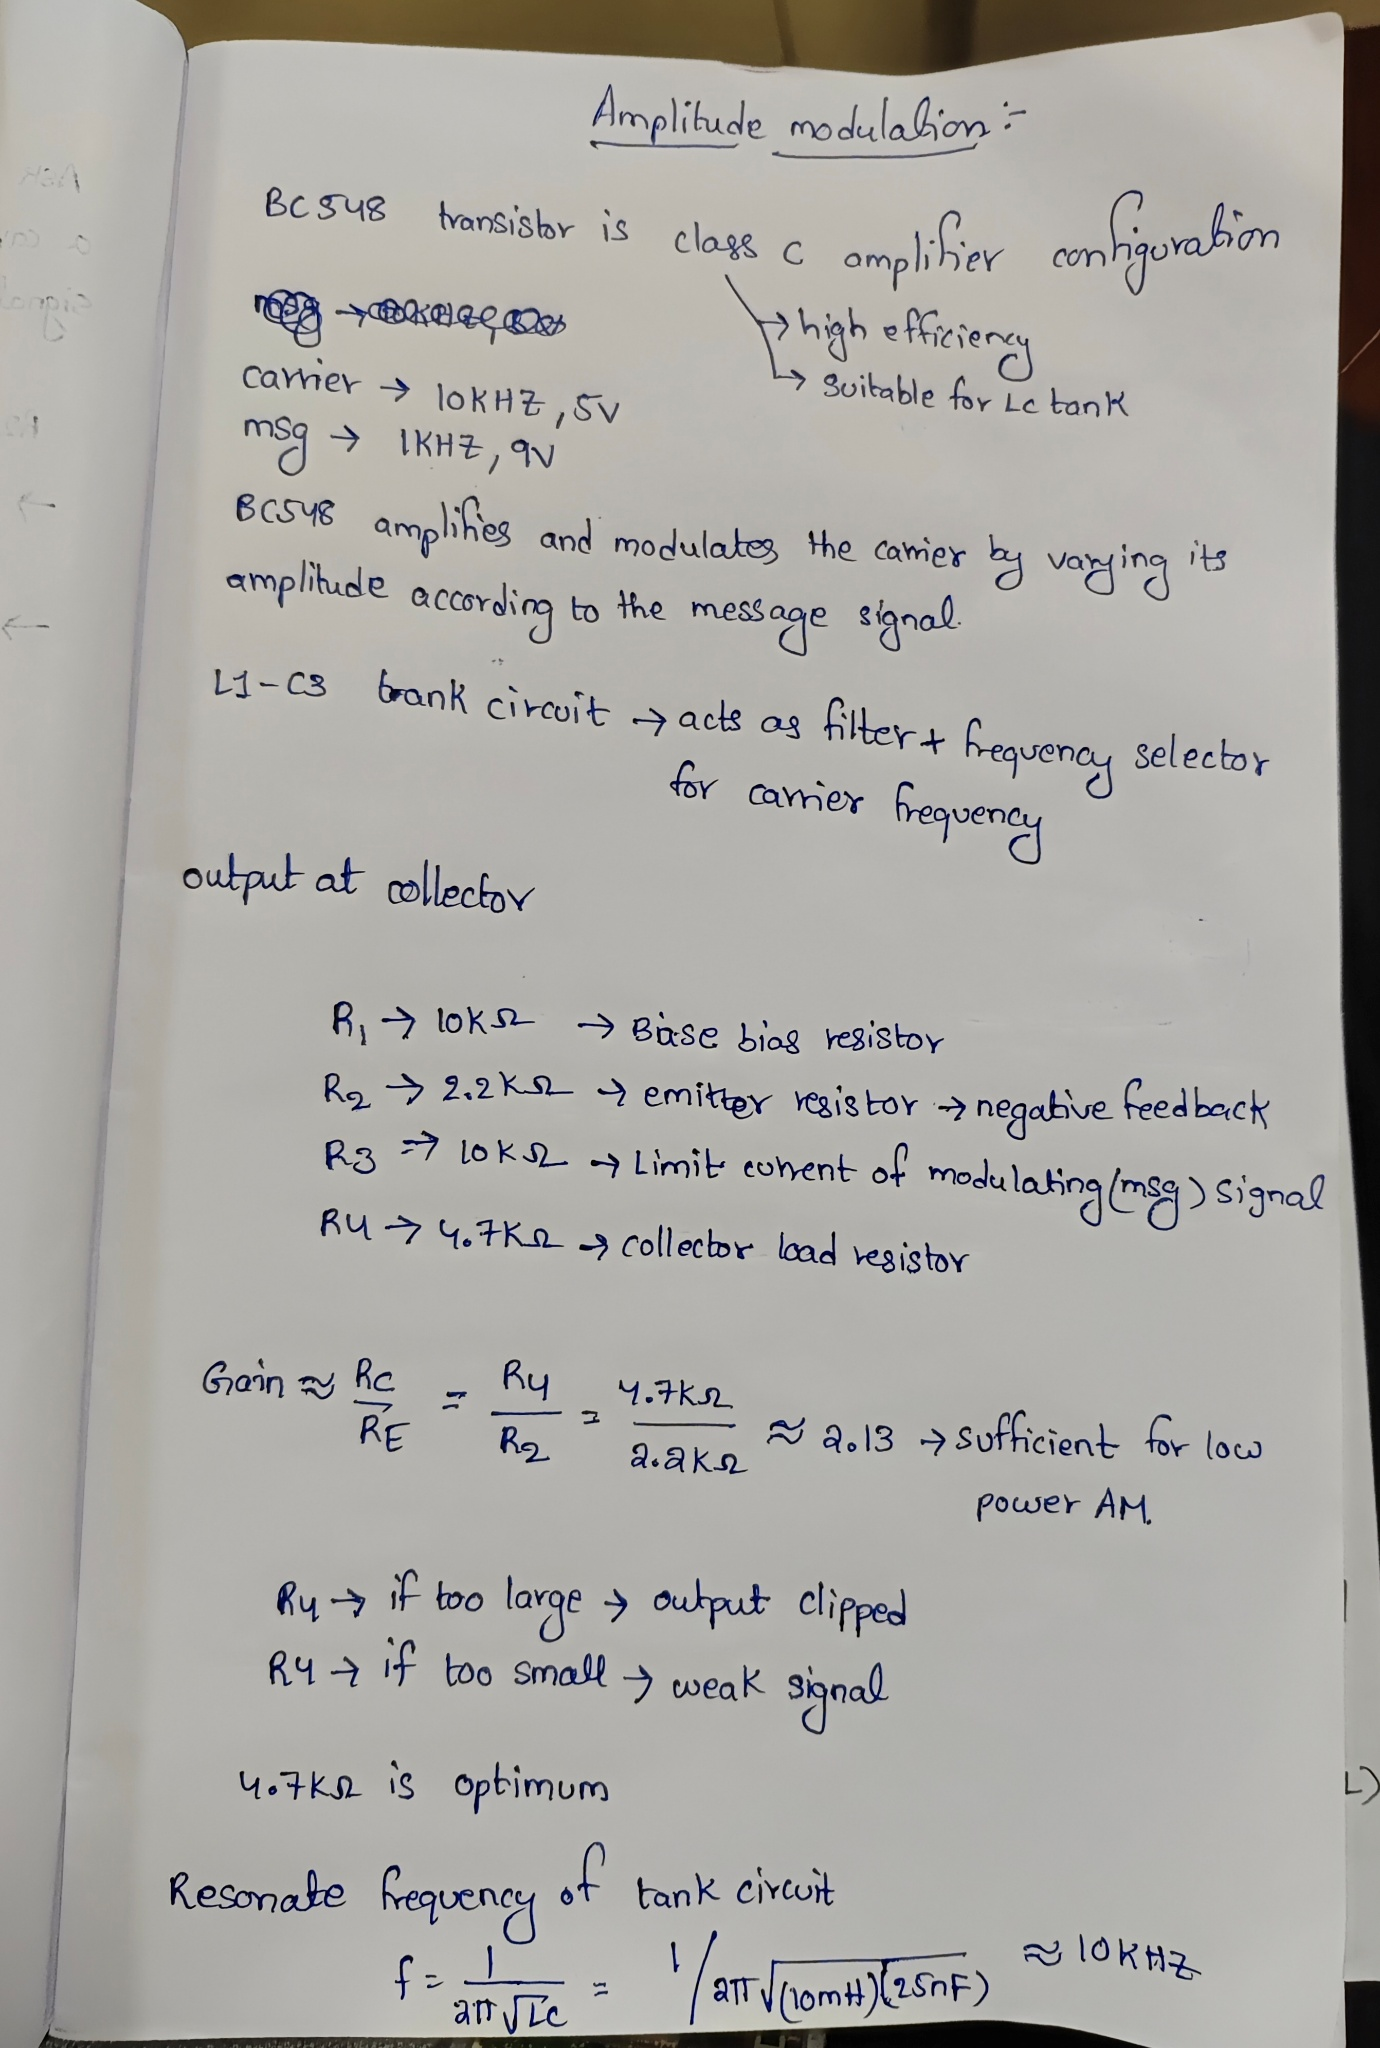 Amplitude modulation :-
BC 548 transistor is class C amplifier configuration
→ high efficiency
→ Suitable for LC tank
carrier → 10KHZ, 5V
msg → 1KHZ, 9V
BC548 amplifies and modulates the carrier by varying its
amplitude according to the message signal.
L1-C3 tank circuit → acts as filter + frequency selector
for carrier frequency
output at collector
R1 → 10KΩ → Base bias resistor
R2 → 2.2KΩ → emitter resistor → negative feedback
R3 → 10KΩ → Limit current of modulating (msg) signal
R4 → 4.7KΩ → collector load resistor
Gain ≈ RC/RE = R4/R2 = 4.7KΩ/2.2KΩ ≈ 2.13 → sufficient for low
power AM.
R4 → if too large → output clipped
R4 → if too small → weak signal
4.7KΩ is optimum
Resonate frequency of tank circuit
f = 1/2π√LC = 1/2π√(10mH)(25nF) ≈ 10KHZ